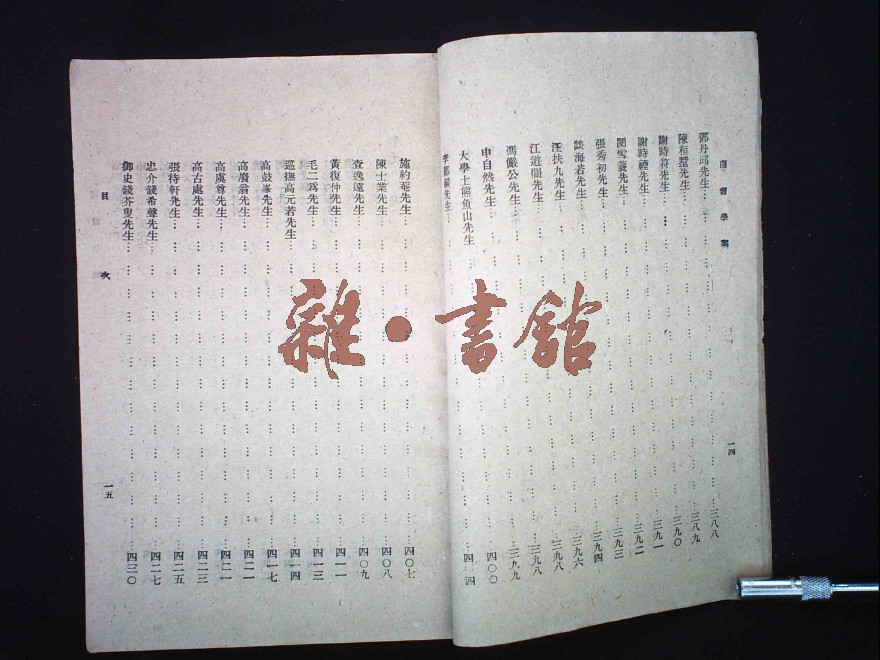 南雷學案
一四
鄧丹邱先生 三八八
陳和墅先生 三八九
謝時符先生 三九〇
謝時禋先生 三九一
閔雪蓑先生 三九二
張秀初先生 三九三
談海若先生 三九四
汪扶九先生 三九六
江道闇先生 三九八
馮儼公先生 三九八
申自然先生 三九九
大學士熊魚山先生 四〇〇
李鄴嗣先生
施約菴先生 四〇七
陳士業先生 四〇八
查逸遠先生 四〇九
黃復仲先生 四一一
毛二爲先生 四一三
巡撫高元若先生 四一四
高鼓峯先生 四一七
高廢翁先生 四二一
高虞尊先生 四二一
高古處先生 四二三
張待軒先生 四二五
忠介錢希聲先生 四二七
御史錢芥叟先生 四三〇
目次
一五
雜·書館